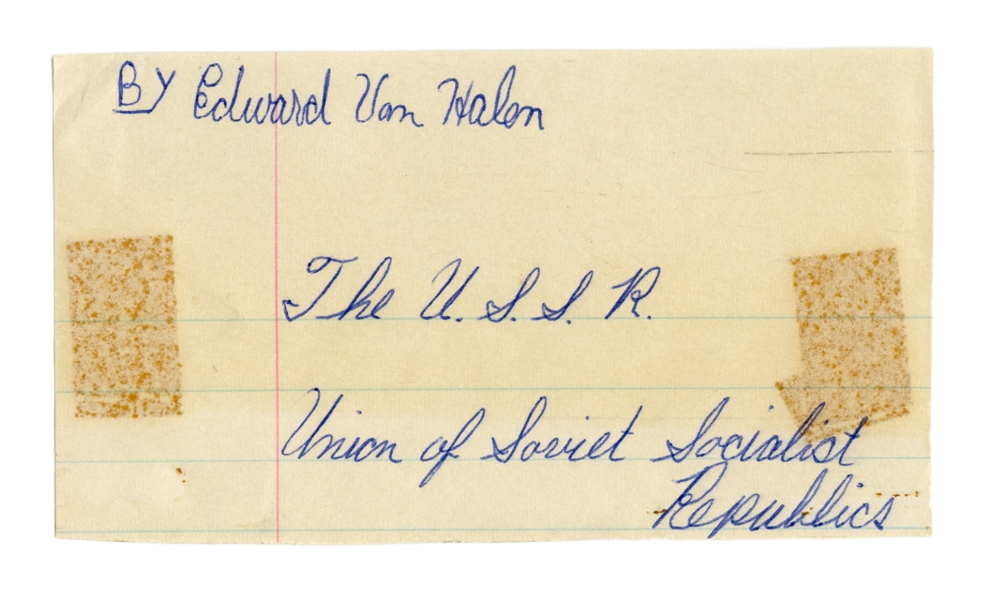 By Edward Van Halen
The U. S. S. R.
Union of Soviet Socialist
Republics